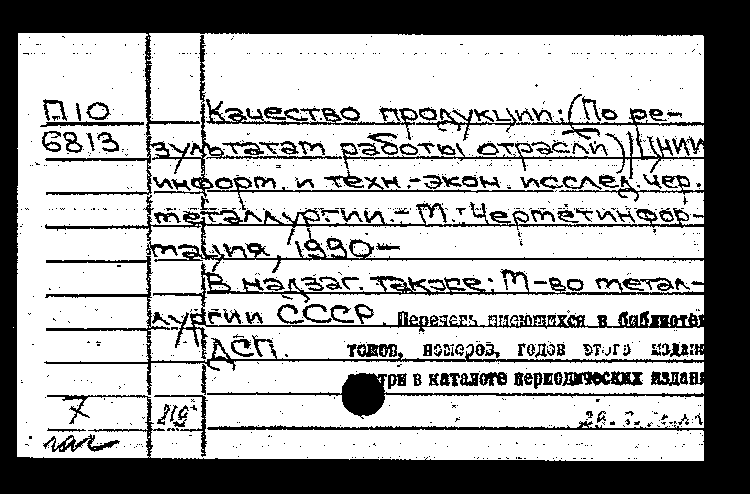 П10 Качество продукции: (По ре-
6813 зультатам работы отрасли) / ЦНИИ
информ. и техн.-экон. исслед. чер.
металлургии. - М.: Черметинфор-
мация, 1990-
В надзаг. также: М-во метал-
лургии СССР. Перечень имеющихся в библиотек
ДСП. томов, номеров, годов этого издан
смотри в каталоге периодических издан
7